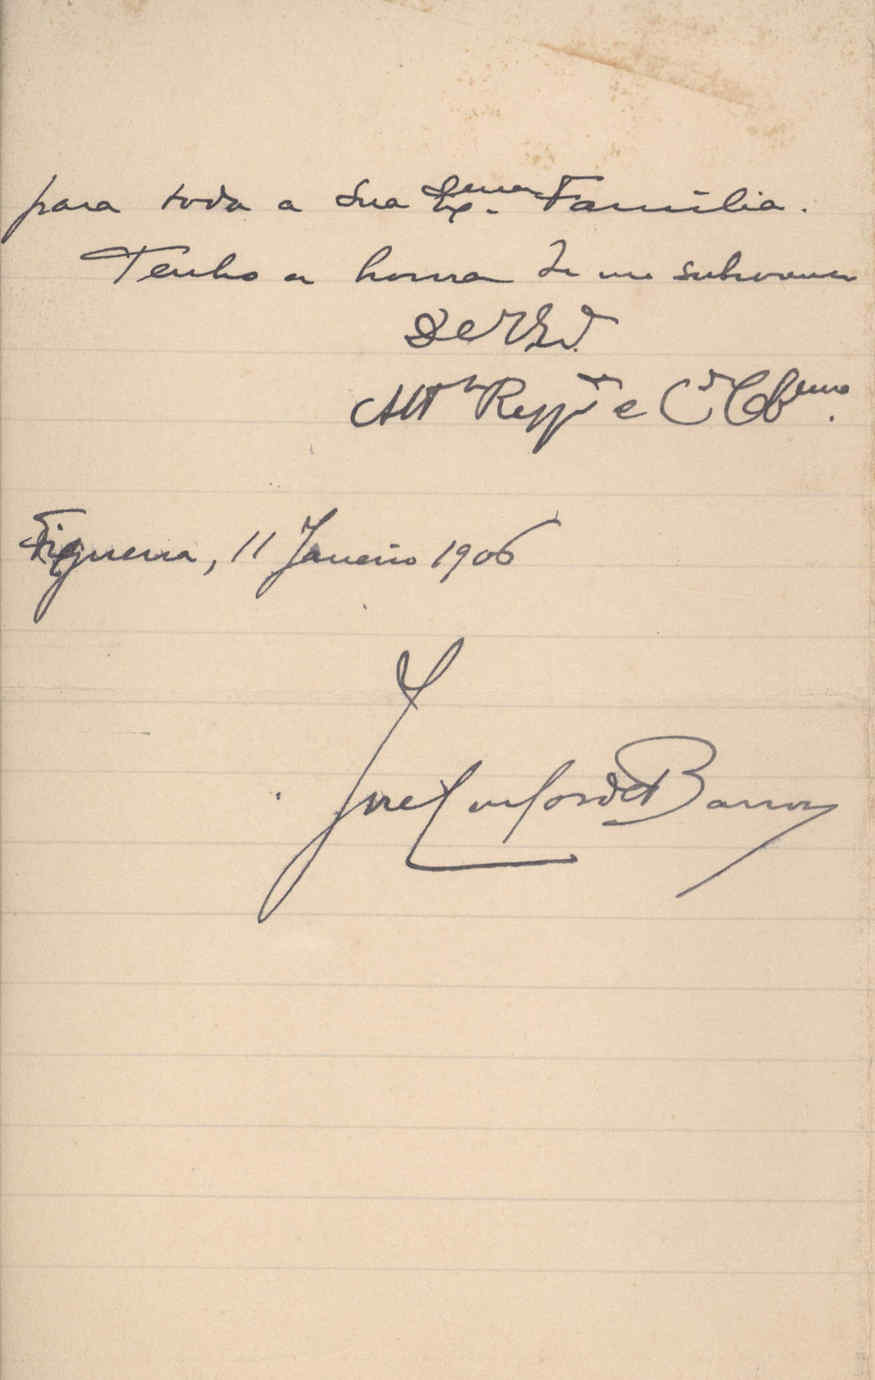 para toda a sua Exma Familia.
Tenho a honra de me subscrever
De V. Exª
Attº e Cr Obgmo.
Figueira, 11 Janeiro 1906
José de Barros